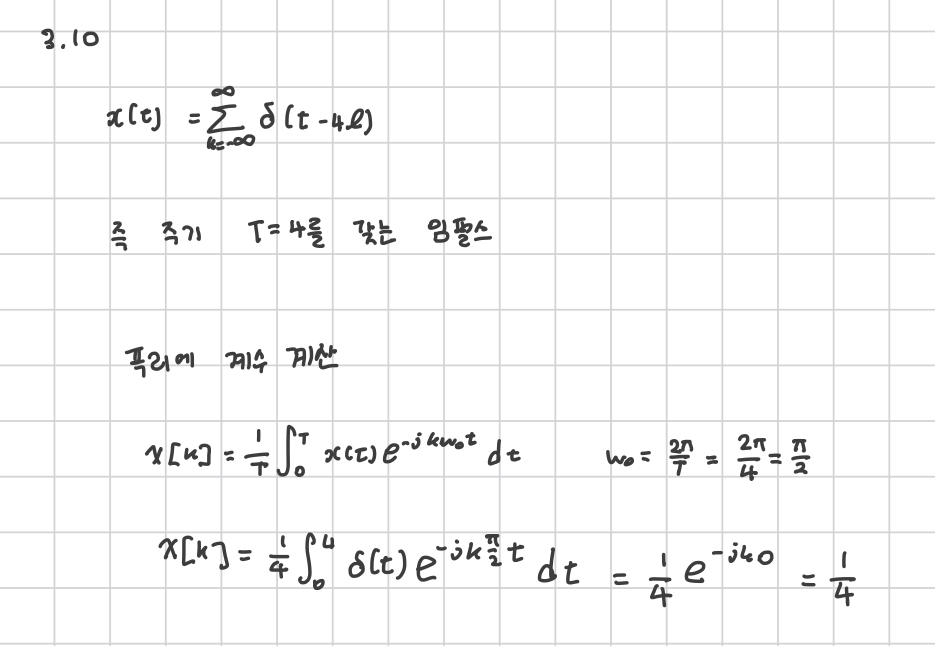 3.10
x(t) = ∑_{k=-∞}^{∞} δ(t-4l)
즉 주기 T=4를 갖는 임펄스
푸리에 계수 계산
X[k] = 1/T ∫_0^T x(t) e^{-jkω₀t} dt ω₀ = 2π/T = 2π/4 = π/2
X[k] = 1/4 ∫_0^4 δ(t) e^{-jk π/2 t} dt = 1/4 e^{-jk0} = 1/4